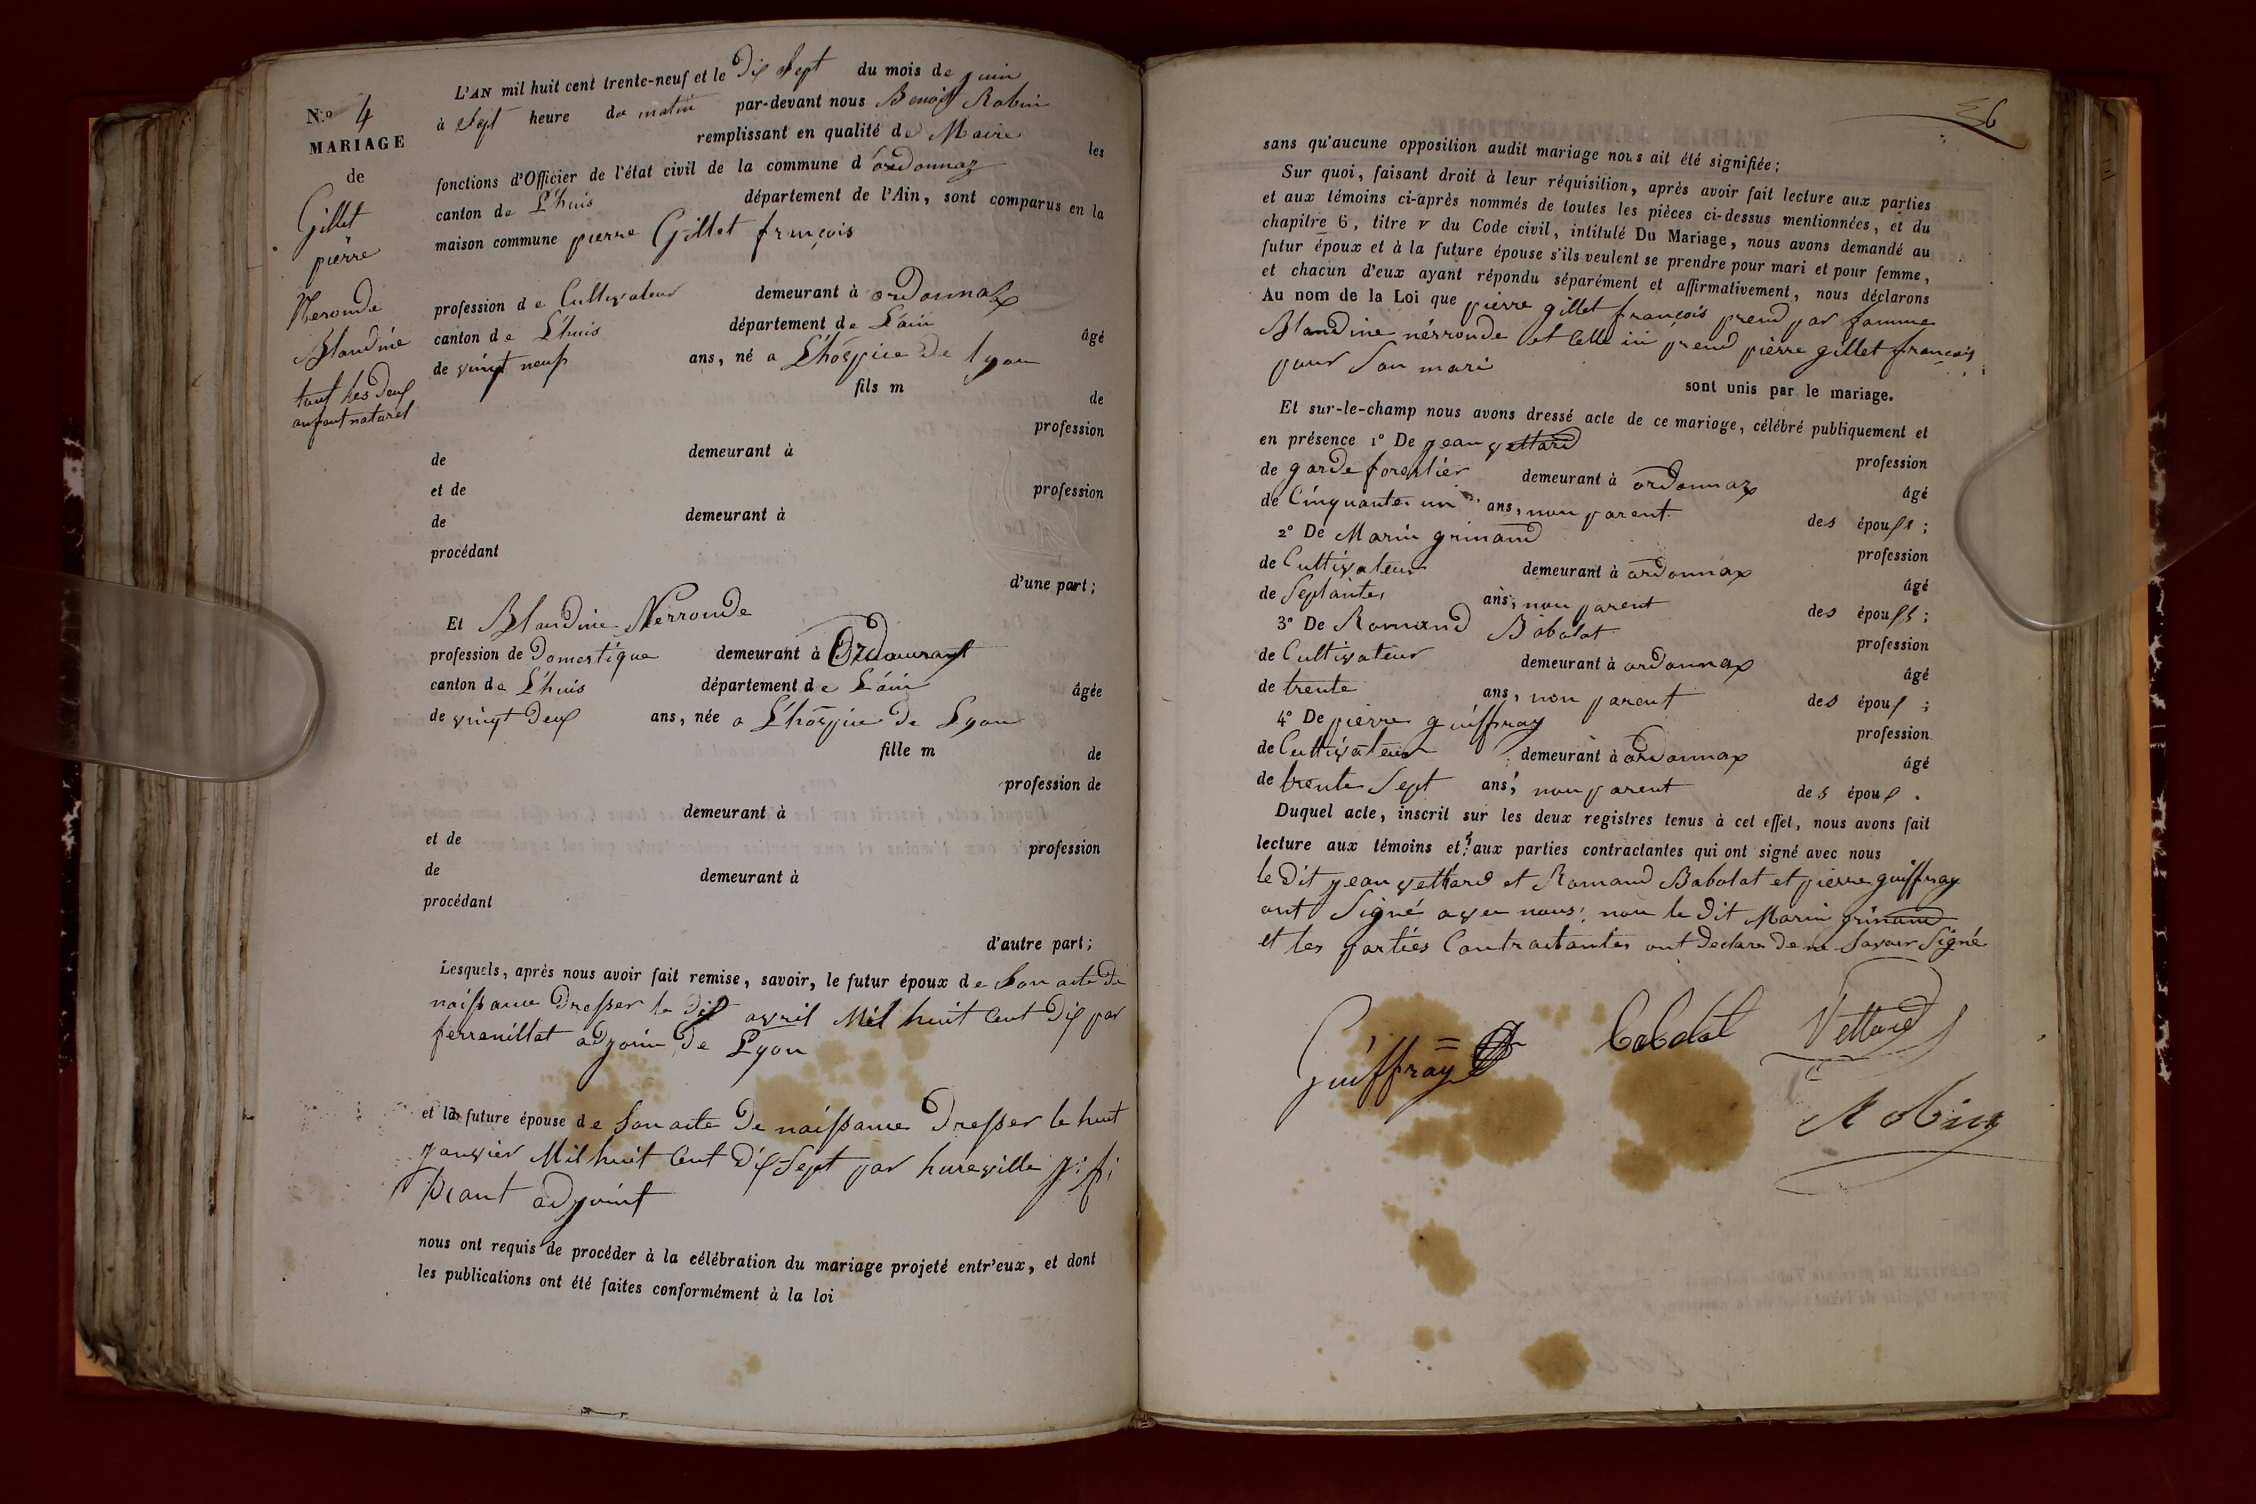 N.o 4
MARIAGE
de
Gillet
pièrre
Neronde
Blandine
tout les deux
anfant naturel
L'AN mil huit cent trente-neuf et le dix Sept du mois de juin
à Sept heure du matin par-devant nous Benoit Robin
remplissant en qualité de Maire les
fonctions d'Officier de l'état civil de la commune d'ordonnaz
canton de L'huis département de l'Ain, sont comparus en la
maison commune pierre Gillet françois
profession de Cultivateur demeurant à ordonnax
canton de L'huis département de L'ain âgé
de vingt neuf ans, né a L'hospice de lyon
fils m de
profession
de demeurant à
et de profession
de demeurant à
procédant
d'une part;
Et Blandine Nerronde
profession de Domestique demeurant à
canton de L'huis département de L'ain âgée
de vingt deux ans, née a L'hospice de Lyon
fille m de
profession de
demeurant à
et de profession
de demeurant à
procédant
d'autre part;
Lesquels, après nous avoir fait remise, savoir, le futur époux de Son acte de
naissance dresser le dix avril Mil huit Cent dix par
ferrouillat adjoin de Lyon
et la future épouse de Son acte de naissance dresser le huit
janvier Mil huit Cent dix Sept par
adjoint
nous ont requis de procéder à la célébration du mariage projeté entr'eux, et dont
les publications ont été faites conformément à la loi
36
sans qu'aucune opposition audit mariage nous ait été signifiée;
Sur quoi, faisant droit à leur réquisition, après avoir fait lecture aux parties
et aux témoins ci-après nommés de toutes les pièces ci-dessus mentionnées, et du
chapitre 6, titre v du Code civil, intitulé Du Mariage, nous avons demandé au
futur époux et à la future épouse s'ils veulent se prendre pour mari et pour femme,
et chacun d'eux ayant répondu séparément et affirmativement, nous déclarons
Au nom de la Loi que pierre gillet françois prend par famme
Blandine nérronde et Celle ici prend pièrre gillet françois
pour Son mari
sont unis par le mariage.
Et sur-le-champ nous avons dressé acte de ce mariage, célébré publiquement et
en présence 1° De jean vettard profession
de garde forestier demeurant à ordonnax âgé
de Cinquante un ans, non parent des époux;
2° De Marin grinand profession
de Cultivateur demeurant à ordonnax âgé
de Septante ans, non parent des époux;
3° De Romand Babolat profession
de Cultivateur demeurant à ordonnax âgé
de trente ans, non parent des époux;
4° De pierre guiffray profession
de Cultivateur demeurant à ordonnax âgé
de trente Sept ans, non parent des époux.
Duquel acte, inscrit sur les deux registres tenus à cet effet, nous avons fait
lecture aux témoins et aux parties contractantes qui ont signé avec nous
le dit jean vettard et Romand Babolat et pierre guiffray
ont Signé avec nous; non le dit Marin grinand
et les parties Contractantes ont declare de ne Savoir Signé
Guiffray Babolat Vettard
Robin